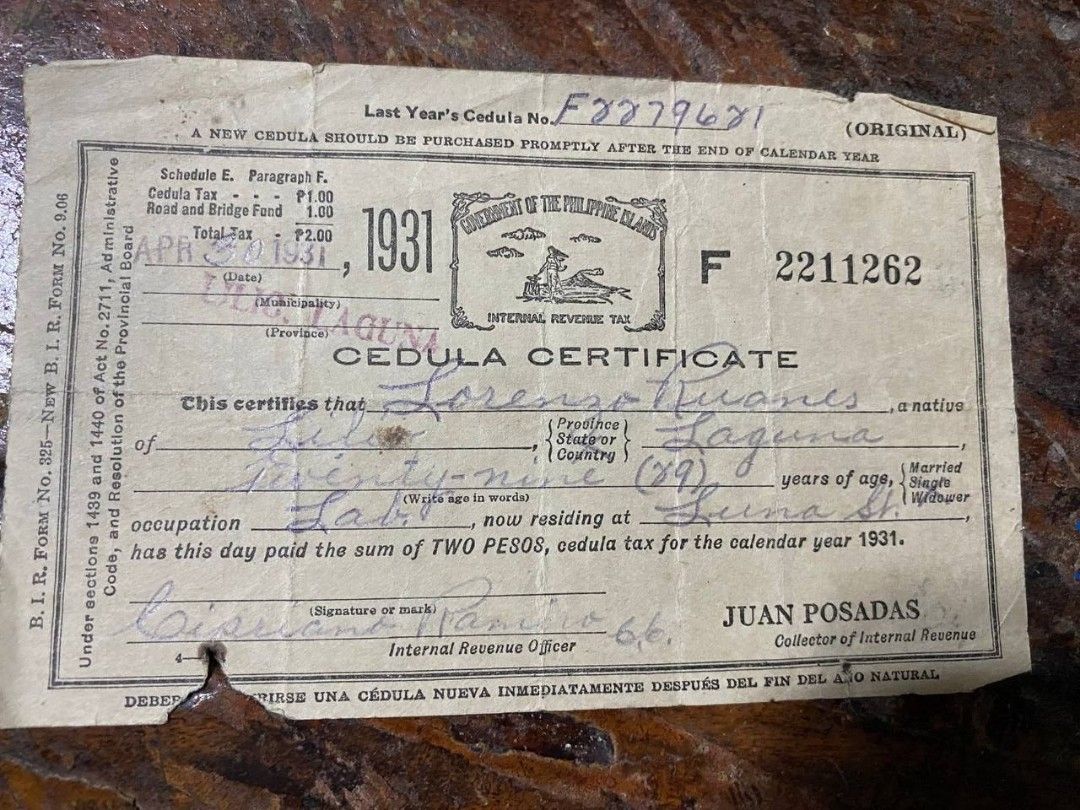 Last Year's Cedula No. F2279621
(ORIGINAL)
A NEW CEDULA SHOULD BE PURCHASED PROMPTLY AFTER THE END OF CALENDAR YEAR
B. I. R. FORM No. 325—NEW B. I. R. FORM No. 9.06
Under sections 1439 and 1440 of Act No. 2711, Administrative
Code, and Resolution of the Provincial Board
Schedule E. Paragraph F.
Cedula Tax - - - ₱1.00
Road and Bridge Fund 1.00
Total Tax - ₱2.00
APR 30 1931, 1931
(Date)
(Municipality)
LAGUNA
(Province)
GOVERNMENT OF THE PHILIPPINE ISLANDS
INTERNAL REVENUE TAX
F 2211262
CEDULA CERTIFICATE
This certifies that Lorenzo Ruanes, a native
of Lilio, {Province State or Country} Laguna,
Twenty-nine (29) years of age, {Married Single Widower
(Write age in words)
occupation Lab., now residing at Luna St.,
has this day paid the sum of TWO PESOS, cedula tax for the calendar year 1931.
(Signature or mark)
Cipriano Ramiro
Internal Revenue Officer
JUAN POSADAS
Collector of Internal Revenue
4—
UNA CÉDULA NUEVA INMEDIATAMENTE DESPUÉS DEL FIN DEL AÑO NATURAL